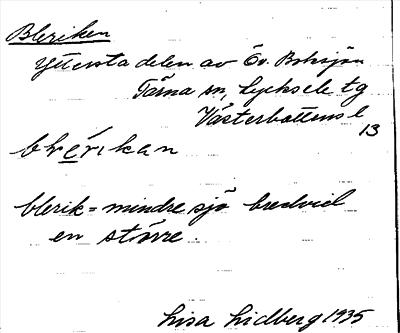 Bleriken
yttersta delen av Öv. Boksjön
Tärna sn, Lycksele tg
Västerbottens l
13
blérikan
blerik = mindre sjö bredvid
en större.
Lisa Lidberg 1935